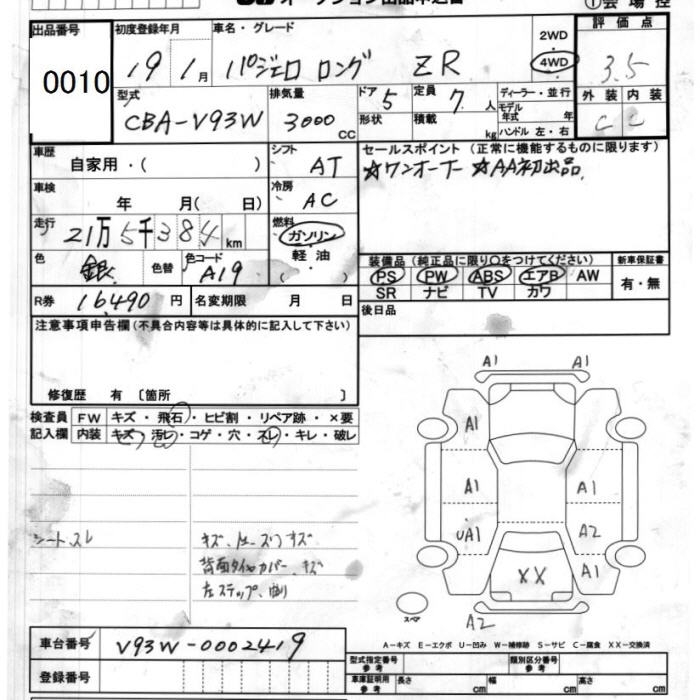 オークション出品申込書
①会場控
出品番号 0010
初度登録年月 19年1月
車名・グレード パジェロ ロング ZR
2WD 4WD
評価点 3.5
型式 CBA-V93W
排気量 3000 cc
ドア 5 形状
定員 7人 積載 kg
ディーラー・並行
モデル年式 年式
ハンドル 左・右
外装 内装
C C
車歴 自家用・( )
シフト AT
セールスポイント(正常に機能するものに限ります)
☆ワンオーナー ☆AA初出品
車検 年 月( 日)
冷房 AC
走行 21万5千384km
燃料 ガソリン 軽油 ( )
色 銀 色替 色コード A19
装備品(純正品に限り○をつけてください) 新車保証書
PS PW ABS エアB AW 有・無
SR ナビ TV カワ
R券 16,490円 名変期限 月 日
後日品
注意事項申告欄(不具合内容等は具体的に記入して下さい)
修復歴 有 〔箇所 〕
検査員記入欄 FW キズ・飛石・ヒビ割・リペア跡・×要
内装 キズ・汚レ・コゲ・穴・スレ・キレ・破レ
シート、スレ
背面タイヤカバー、キズ
左ステップ、曲り
A1 A1
A1
A1 A1
UA1 A2
XX A1
スペア A2
A-キズ E-エクボ U-凹み W-補修跡 S-サビ C-腐食 XX-交換済
車台番号 V93W-0002419
登録番号
型式指定番号 参考 類別区分番号 参考
車庫証明用 参考 長さ cm 幅 cm 高さ cm